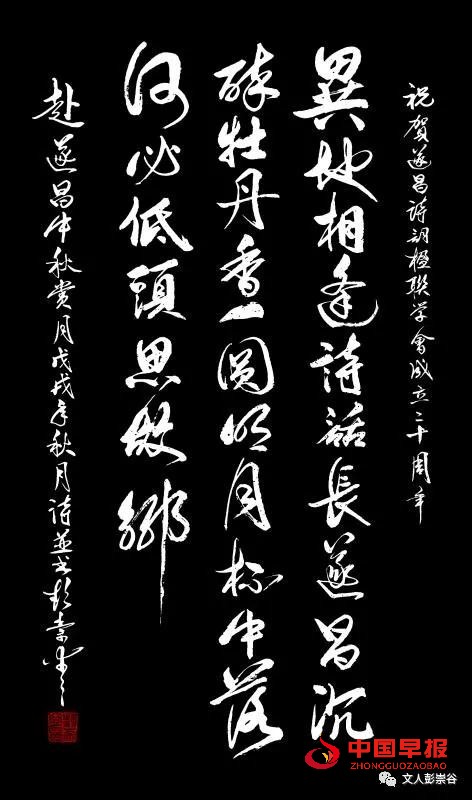 祝賀遂昌詩詞楹聯学會成立三十周年
異地相逢詩話長遂昌沉
醉牡丹香一圆明月杯中落
何必低頭思故鄉
赴遂昌中秋賞月戊戌年秋月詩並书彭崇谷
中国早报
ZHONGGUOZAOBAO
文人彭崇谷